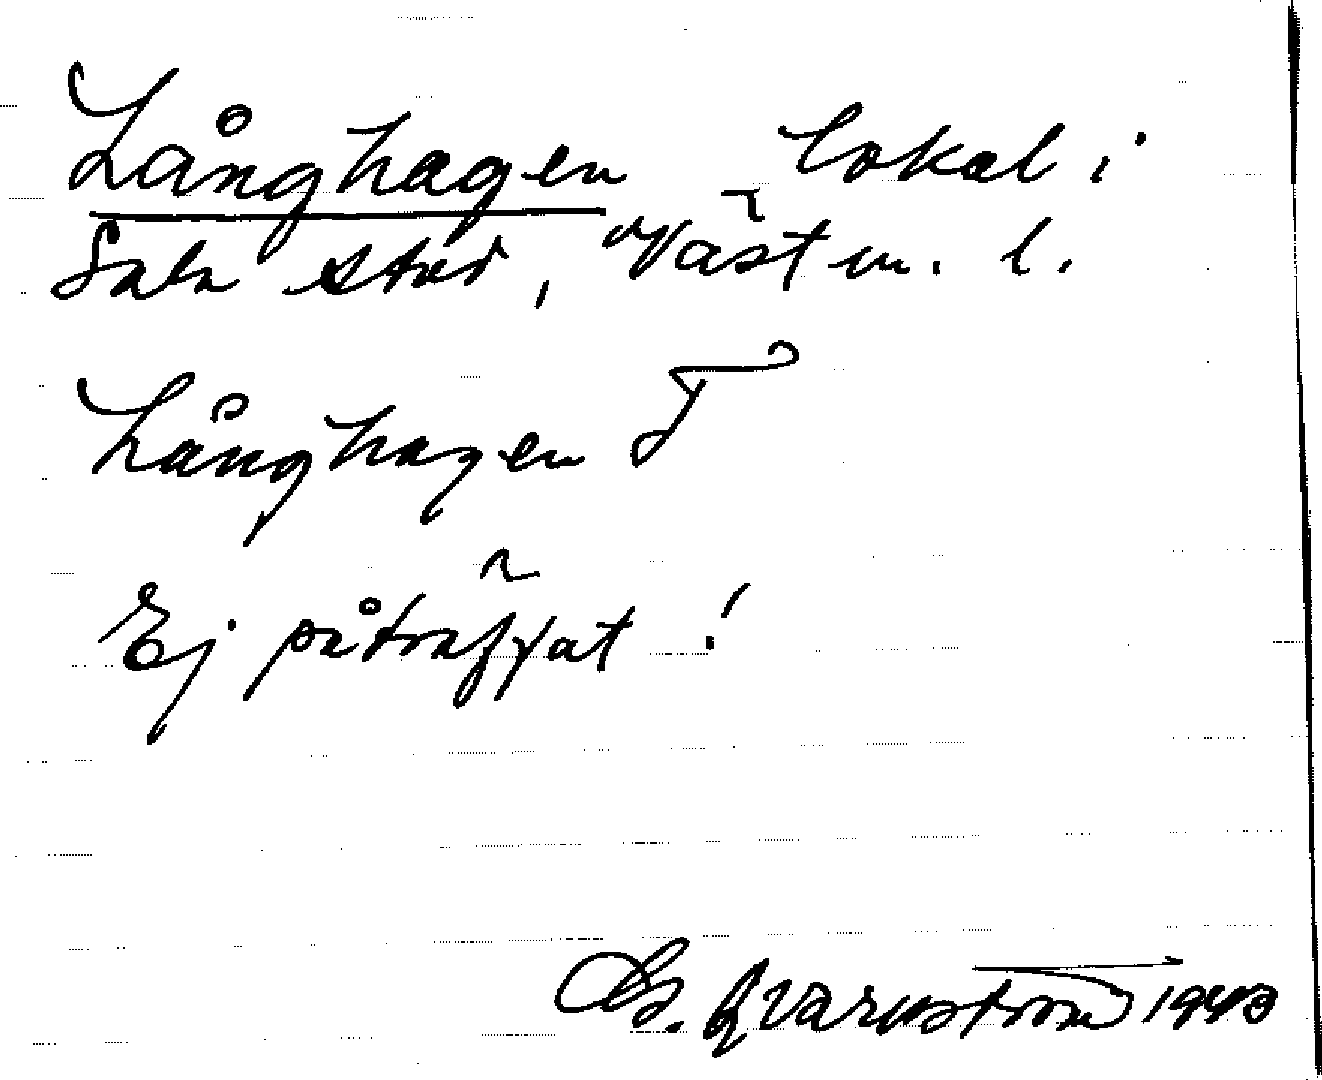 Långhagen lokal i
Sala stad, Västm. l.
Långhagen T
Ej påträffat!
Qvarnström 1943